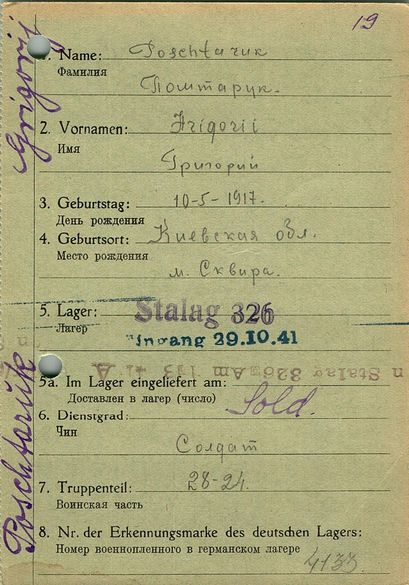 19
Grigorij
1. Name: Poschtaruk
Фамилия
Поштарук.
2. Vornamen: Grigorii
Имя
Григорий
3. Geburtstag: 10-5-1917.
День рождения
4. Geburtsort: Киевская обл.
Место рождения
м. Сквира.
5. Lager: Stalag 326
Лагерь
Eingang 29.10.41
n Stalag 326 Am
5a. Im Lager eingeliefert am:
Доставлен в лагер (число)
Sold.
6. Dienstgrad:
Чин
Солдат
7. Truppenteil: 28-24.
Воинская часть
8. Nr. der Erkennungsmarke des deutschen Lagers:
Номер военнопленного в германском лагере
4133
Poschtaruk